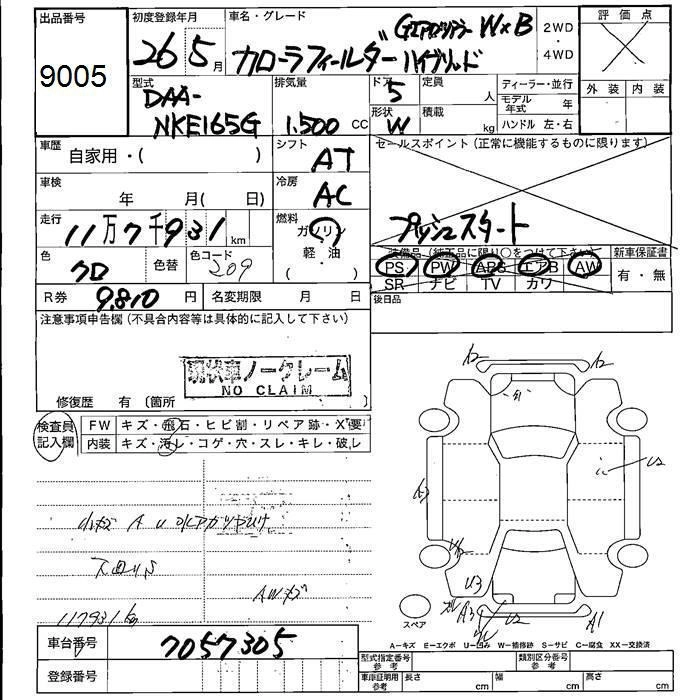 出品番号
9005
初度登録年月
26年5月
車名・グレード
Gエアロツアラー W×B
カローラフィールダー ハイブリッド
2WD
・
4WD
評価点
外装 内装
型式
DAA-
NKE165G
排気量
1.500 CC
ドア
5
形状
W
定員
人
積載
kg
ディーラー・並行
モデル年式 年
ハンドル 左・右
車歴
自家用・( )
シフト
AT
セールスポイント (正常に機能するものに限ります)
プッシュスタート
車検
年 月( 日)
冷房
AC
走行
11万7千931km
燃料
ガソリン
軽・油
( ・ )
色
クロ
色替
色コード
209
装備品 (純正品に限り○をつけて下さい)
PS PW ABS エアB AW
SR ナビ TV カワ
新車保証書
有・無
R券 9,810 円
名変期限 月 日
後日品
注意事項申告欄 (不具合内容等は具体的に記入して下さい)
現状車ノークレーム
NO CLAIM
修復歴 有 〔箇所
検査員記入欄
FW キズ・飛石・ヒビ割・リペア跡・X要
内装 キズ・汚レ・コゲ・穴・スレ・キレ・破レ
AWキズ
117931km
A2
A2
U2
A3
U3
A3
U2
A1
スペア
A−キズ E−エクボ U−凹み W−補修跡 S−サビ C−腐食 XX−交換済
車台番号 7057305
登録番号
型式指定番号 参考
類別区分番号 参考
車庫証明用 参考
長さ cm
幅 cm
高さ cm